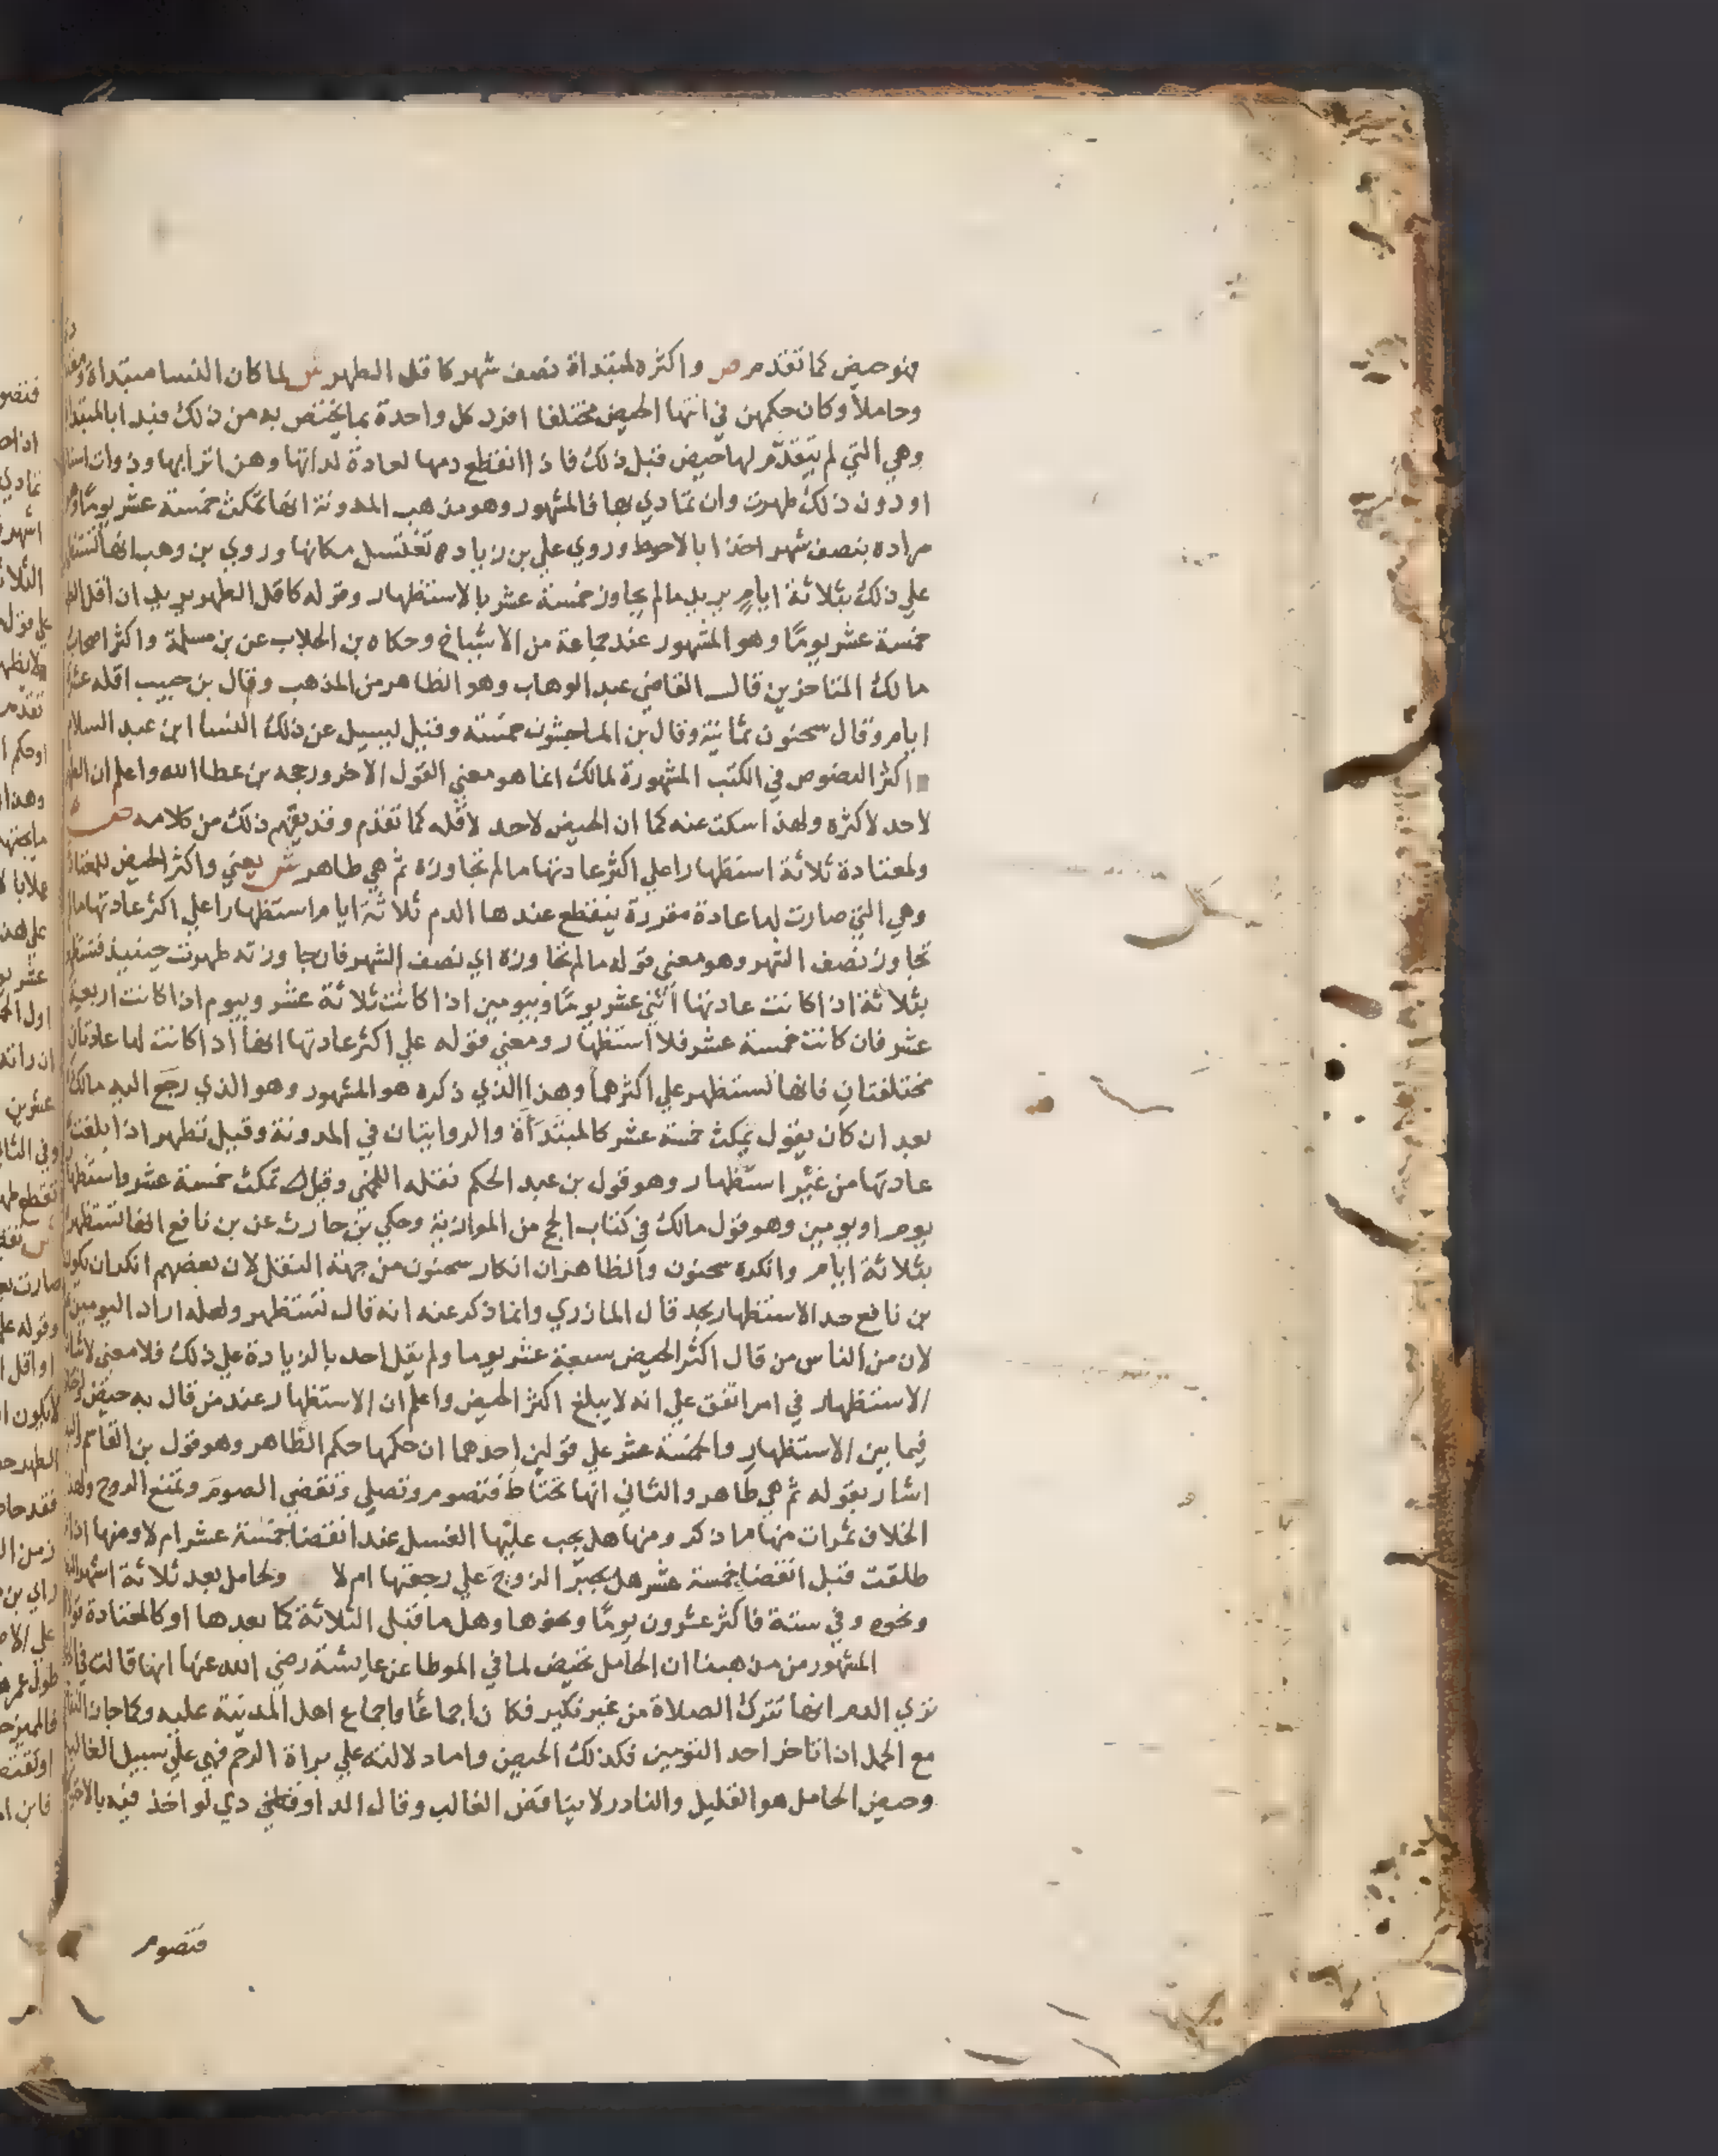 فهو حيض كما تقدم ص واكثره لمبتداة نصف شهر كاقل الطهر ش لما كان النسا مبتداة
وحاملا وكان حكمهن في انتها الحيض مختلفا افرد كل واحدة بما يختص به من ذلك فبدا بالمبتداة
وهي التي لم يتقدم لها حيض قبل ذلك فاذا انقطع دمها لعادة لداتها وهن اترابها وذوات اسنانها
او دون ذلك طهرت وان تمادي بها فالمشهور وهو مذهب المدونة انها تمكث خمسة عشر يوما
مراده بنصف شهر اخذا بالاحوط وروي علي بن زياد تغتسل مكانها وروي بن وهب انها
علي ذلك بثلاثة ايام يريد مالم يجاوز خمسة عشر بالاستظهار وقوله كاقل الطهر يريد ان اقل
خمسة عشر يوما وهو المشهور عند جماعة من الاشياخ وحكاه بن الجلاب عن بن مسلمة واكثر اصحاب
مالك المتاخرين قال القاضي عبد الوهاب وهو الظاهر من المذهب وقال بن حبيب اقله عشرة
ايام وقال سحنون ثمانية وقال بن الماجشون خمسة وقيل ليسيل عن ذلك النسا ابن عبد السلام
اكثر النصوص في الكتب المشهورة لمالك انما هو معني القول الاخر ورجحه بن عطا الله واعلم ان
لاحد لاكثره ولهذا سكت عنه كما ان الحيض لاحد لاقله كما تقدم وقد يفهم ذلك من كلامه ص
ولمعتادة ثلاثة استظهارا علي اكثر عادتها مالم تجاوزه ثم هي طاهر ش يعني واكثر الحيض للمعتادة
وهي التي صارت لها عادة مقررة ينقطع عندها الدم ثلاثة ايام استظهارا علي اكثر عادتها مالم
تجاوز نصف الشهر وهو معني قوله مالم تجاوزه اي نصف الشهر فان جاوزته طهرت حينيذ
بثلاثة اذا كانت عادتها اثني عشر يوما وبيومين اذا كانت ثلاثة عشر وبيوم اذا كانت اربعة
عشر فان كانت خمسة عشر فلا استظهار ومعني قوله علي اكثر عادتها انها اذا كانت لها عادتان
مختلفتان فانها تستظهر علي اكثرهما وهذا الذي ذكره هو المشهور وهو الذي رجع اليه مالك
بعد ان كان يقول تمكث خمسة عشر كالمبتدأة والروايتان في المدونة وقيل تطهر اذا بلغت
عادتها من غير استظهار وهو قول بن عبد الحكم نقله اللخمي وقيل تمكث خمسة عشر واستظهار
يوم او يومين وهو قول مالك في كتاب الحج من الموازنية وحكي بن حارث عن بن نافع انها تستظهر
بثلاثة ايام وانكره سحنون والظاهر ان انكار سحنون من جهة النقل لان بعضهم انكر ان يكون
بن نافع حد الاستظهار بحد قال المازري وانما ذكر عنه انه قال تستظهر ولعله اراد اليومين
لان من الناس من قال اكثر الحيض سبعة عشر يوما ولم يقل احد بالزيادة علي ذلك فلا معني
الاستظهار في امر اتفق علي انه لا يبلغ اكثر الحيض واعلم ان الاستظهار عند من قال به حيض
فيما بين الاستظهار والخمسة عشر علي قولين احدهما ان حكمها حكم الطاهر وهو قول بن القاسم
اشار بقوله ثم هي طاهر والثاني انها تحتاط فتصوم وتصلي وتقضي الصوم وتمنع الزوج
الخلاف ثمرات منها ما ذكر ومنها هل يجب عليها الغسل عند انقضا خمسة عشر ام لا ومنها اذا
طلقت قبل انقضا خمسة عشر هل يجبر الزوج علي رجعتها ام لا ولحامل بعد ثلاثة اشهر
ونحوه وفي ستة فاكثر عشرون يوما ونحوها وهل ما قبل الثلاثة كما بعدها او كالمعتادة
المشهور من مذهبنا ان الحامل تحيض لما في الموطا عن عايشة رضي الله عنها انها قالت في
تري الدم انها تترك الصلاة من غير نكير فكان اجماعا واجماع اهل المدينة عليه وكما جاز
مع الحمل اذا تاخر احد التومين فكذلك الحيض واما دلالته علي براة الرحم فهي علي سبيل الغالب
وحيض الحامل هو القليل والنادر لا يناقض الغالب وقال الداوودي لو اخذ فيه بالاحوط
فتصوم